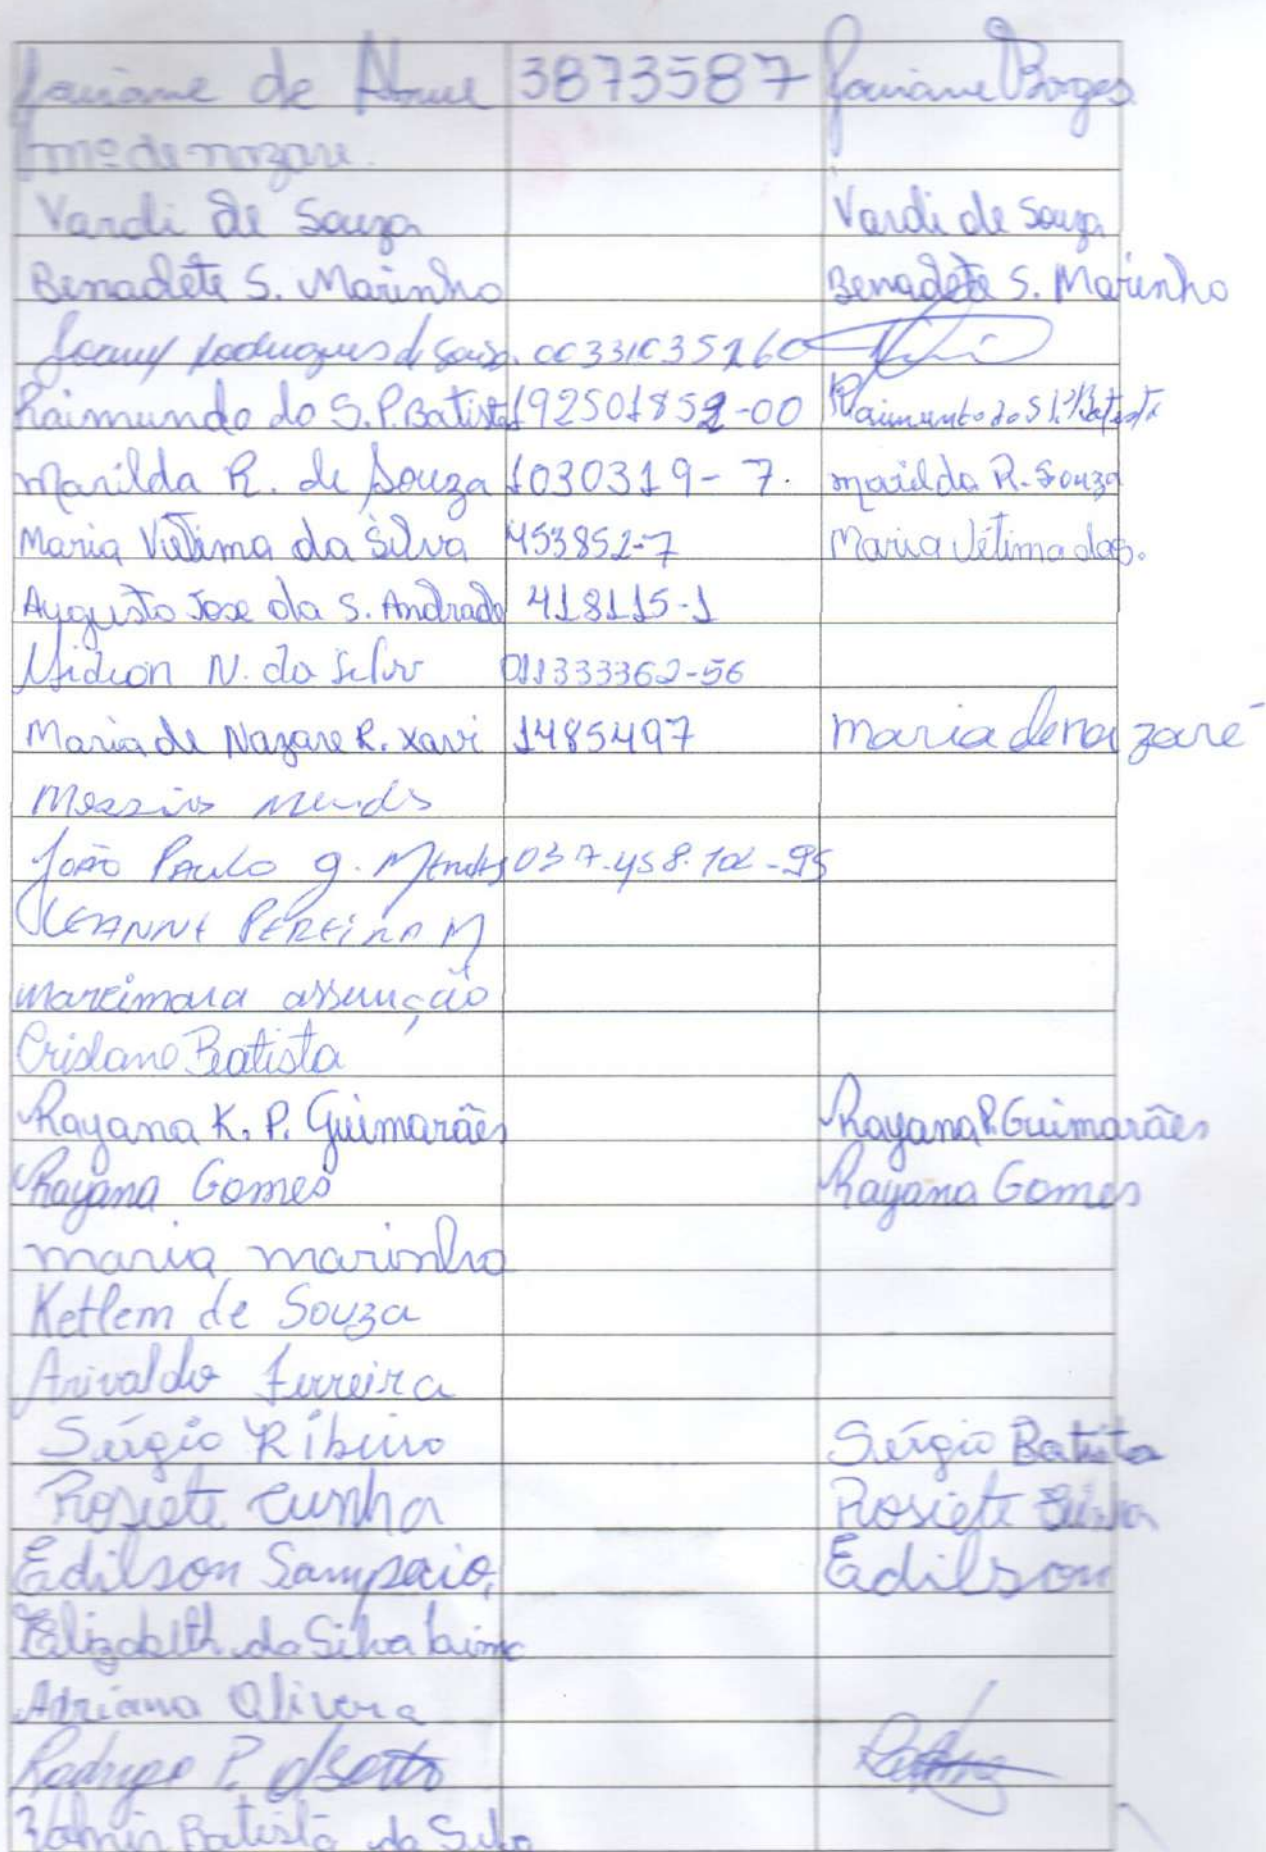 de 3873587 Borges
mª de nazare.
Vardi de Souza Vardi de Souza
Benadete S. Marinho Benadete S. Marinho
Rodrigues d Souza. 00331035260
Raimundo do S. P. Batista 192501852-00 Raimundo do S P Batista
Marilda R. de Souza 1030319-7. Marilda R. Souza
Maria Vitima da Silva 453852-7 Maria Vitima das.
Augusto Jose da S. Andrade 418115-1
N. da Silva 011333362-56
Maria de Nazare R. Xavi 1485497 maria de nazaré
Messias Mendes
João Paulo g. Mendes 037.458.102-95
PEREIRA M
marcimara assunção
Crislane Batista
Rayana K. P. Guimarães Rayana P. Guimarães
Rayana Gomes Rayana Gomes
maria marinho
Ketlem de Souza
Arivaldo Ferreira
Sérgio Ribeiro Sérgio Batista
Rosiete Cunha Rosiete
Edilson Sampaio, Edilson
Elizabeth da Silva
Adriana Olivera
Rodrigo P.
Batista da Silva